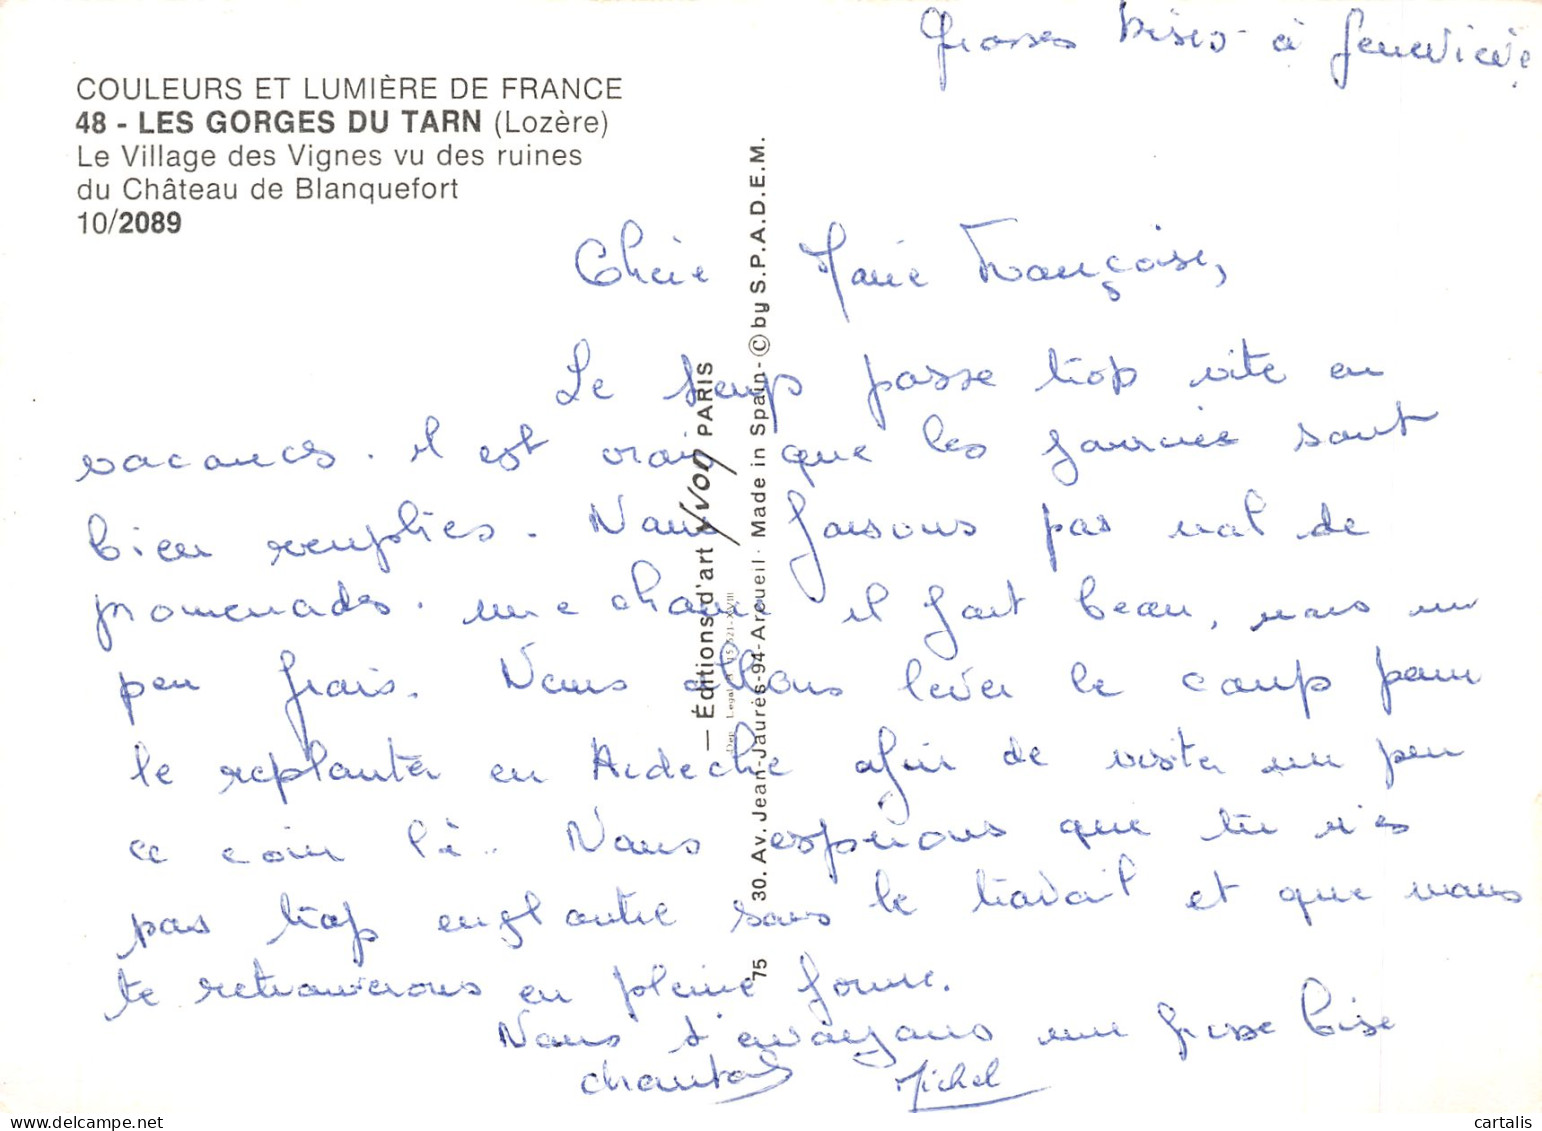 Grosses bises à Geneviève
COULEURS ET LUMIÈRE DE FRANCE
48 - LES GORGES DU TARN (Lozère)
Le Village des Vignes vu des ruines
du Château de Blanquefort
10/2089
Chère Marie Françoise,
Le temps passe trop vite en
vacances. il est vrai que les journée sont
bien remplies. Nous faisons pas mal de
promenades. une chance il fait beau, mais un
peu frais. Nous allons lever le camp pour
le replanter en Ardeche afin de visiter un peu
ce coin là. Nous espérons que tu n'es
pas trop engloutie sous le travail et que nous
te retrouverons en pleine forme.
Nous t'envoyons une grosse bise
Chantal Michel
— Éditions d'art YVON PARIS
Dep. Legal B.
75 30. Av. Jean-Jaurès-94-Arcueil · Made in Spain - © by S.P.A.D.E.M.
cartalis